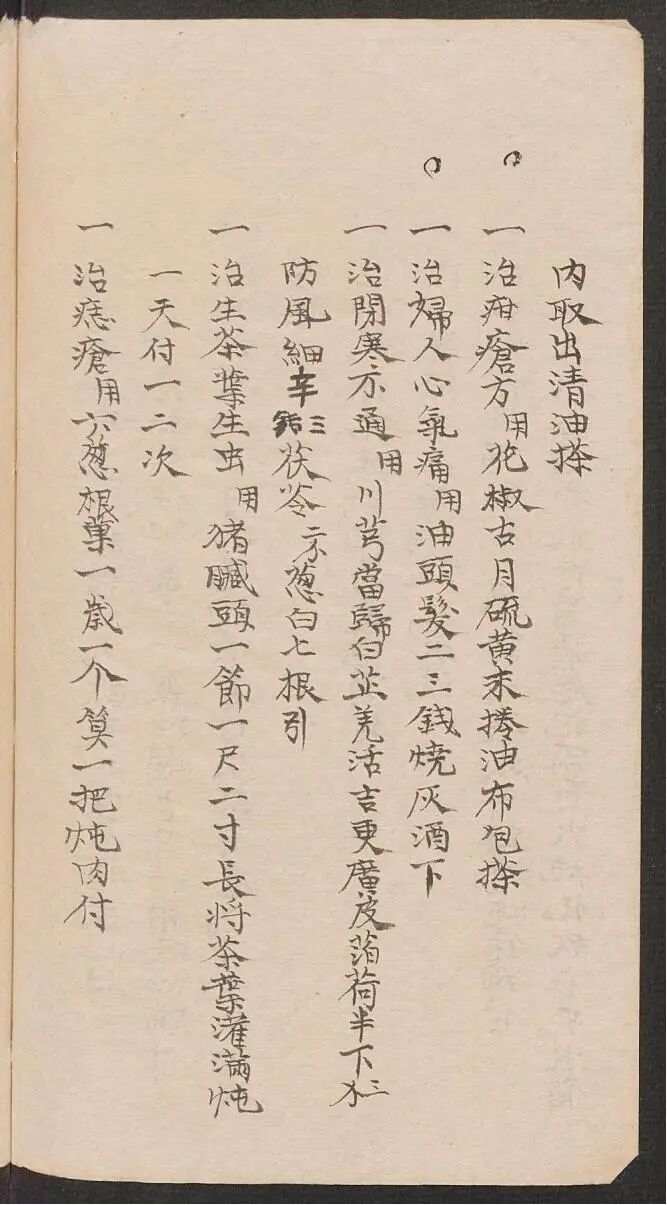 内取出清油搽
一 治疳瘡方用花椒古月硫黄末捲油布包搽
一 治婦人心氣痛用油頭髮二三錢燒灰酒下
一 治閉寒不通用川芎當歸白芷羌活吉更廣皮萡荷半下
防風細辛三茯苓葱白七根引
一 治生茶葉生虫用猪臓頭一節一尺二寸長将茶葉灌滿炖
一天付一二次
一 治痣瘡用葱根菓一歲一个算一把炖肉付